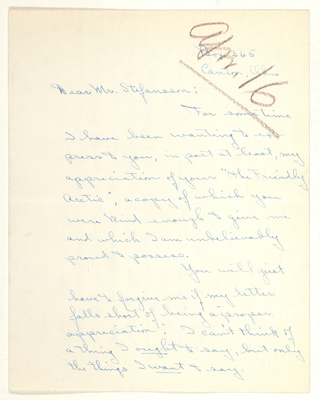 Box 365
Canton, Ohio
Apr 16
Dear Mr. Stefansson:
For some time
I have been wanting to ex-
press to you, in part at least, my
appreciation of your "The Friendly
Arctic", a copy of which you
were kind enough to give me
and which I am unbelievably
proud to possess.
You will just
have to forgive me if my letter
falls short of being a "proper
appreciation". I can't think of
a thing I ought to say, but only
the things I want to say.